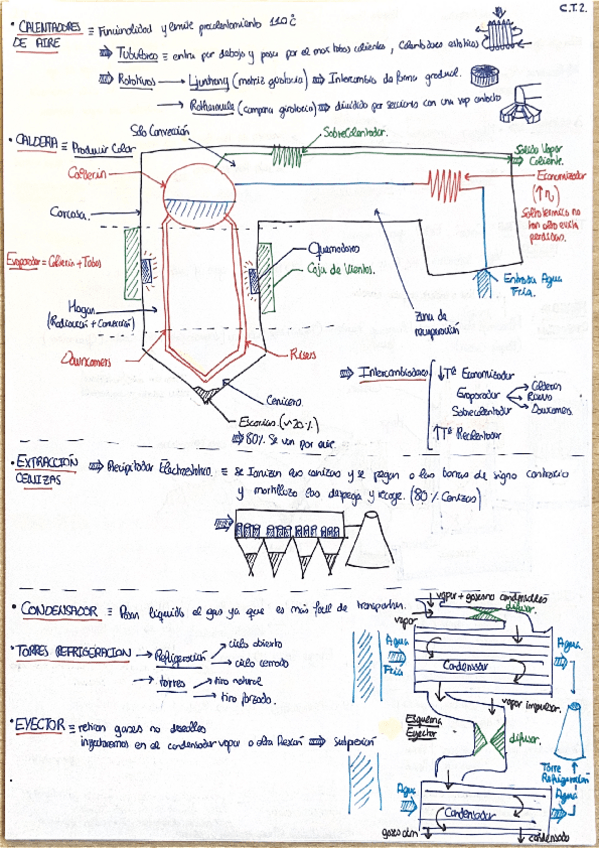 C.T.2.
• CALENTADORES DE AIRE ≡ Funcionalidad y limite precalentamiento 110°C
⇒ Tubulares ≡ entra por debajo y pasa por el mov. tubos calientes,
⇒ Rotativos → Ljunstrong (matriz giratoria) ⇒ Intercambio de forma gradual.
→ Rothemule (campana giratoria) ⇒ dividido por secciones con una
• CALDERA ≡ Producir Calor
Solo Convección
Sobrecalentador.
Salida Vapor
Caliente.
Calderín
Economizador
(↑η)
Salto térmico no
tan alto evita
perdidas.
Carcasa.
Evaporador = Calderín + Tubos
Quemadores
Caja de Vientos.
Entrada Agua
Fría.
Hogar
(Radiación + Convección)
Zona de
recuperación
Downcomers
Risers
⇒ Intercambiadores
↓Tª Economizador
Evaporador
Calderín
Risers
Downcomers
Sobrecalentador
↑Tª Recalentador
Cenicero.
Escorias (~20%)
⇒ 80% Se van por aire
• EXTRACCIÓN CENIZAS ⇒ Precipitador Electrostático. ≡ se Ionizan las cenizas y se pegan a las barras de signo contrario
y martillazo las despega y recoge. (80% Cenizas)
• CONDENSADOR ≡ Pasan líquido el gas ya que es más facil de transportar.
vapor + gases no condensables
difusor.
vapor
• TORRES REFRIGERACION → Refrigeración → ciclo abierto
→ ciclo cerrado
→ torres → tiro natural
→ tiro forzado.
Agua
Fría
Condensador
Agua
vapor impulsor.
• EYECTOR ≡ retiran gases no deseados
inyectaremos en el condensador vapor a alta Presión ⇒ Subpresión
Esquema
Eyector
difusor.
Torre
Refrigeración
Agua
Condensador
Agua
gases atm
condensado